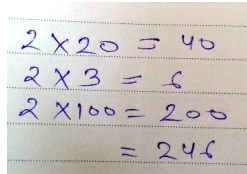 2 × 20 = 40
2 × 3 = 6
2 × 100 = 200
= 246